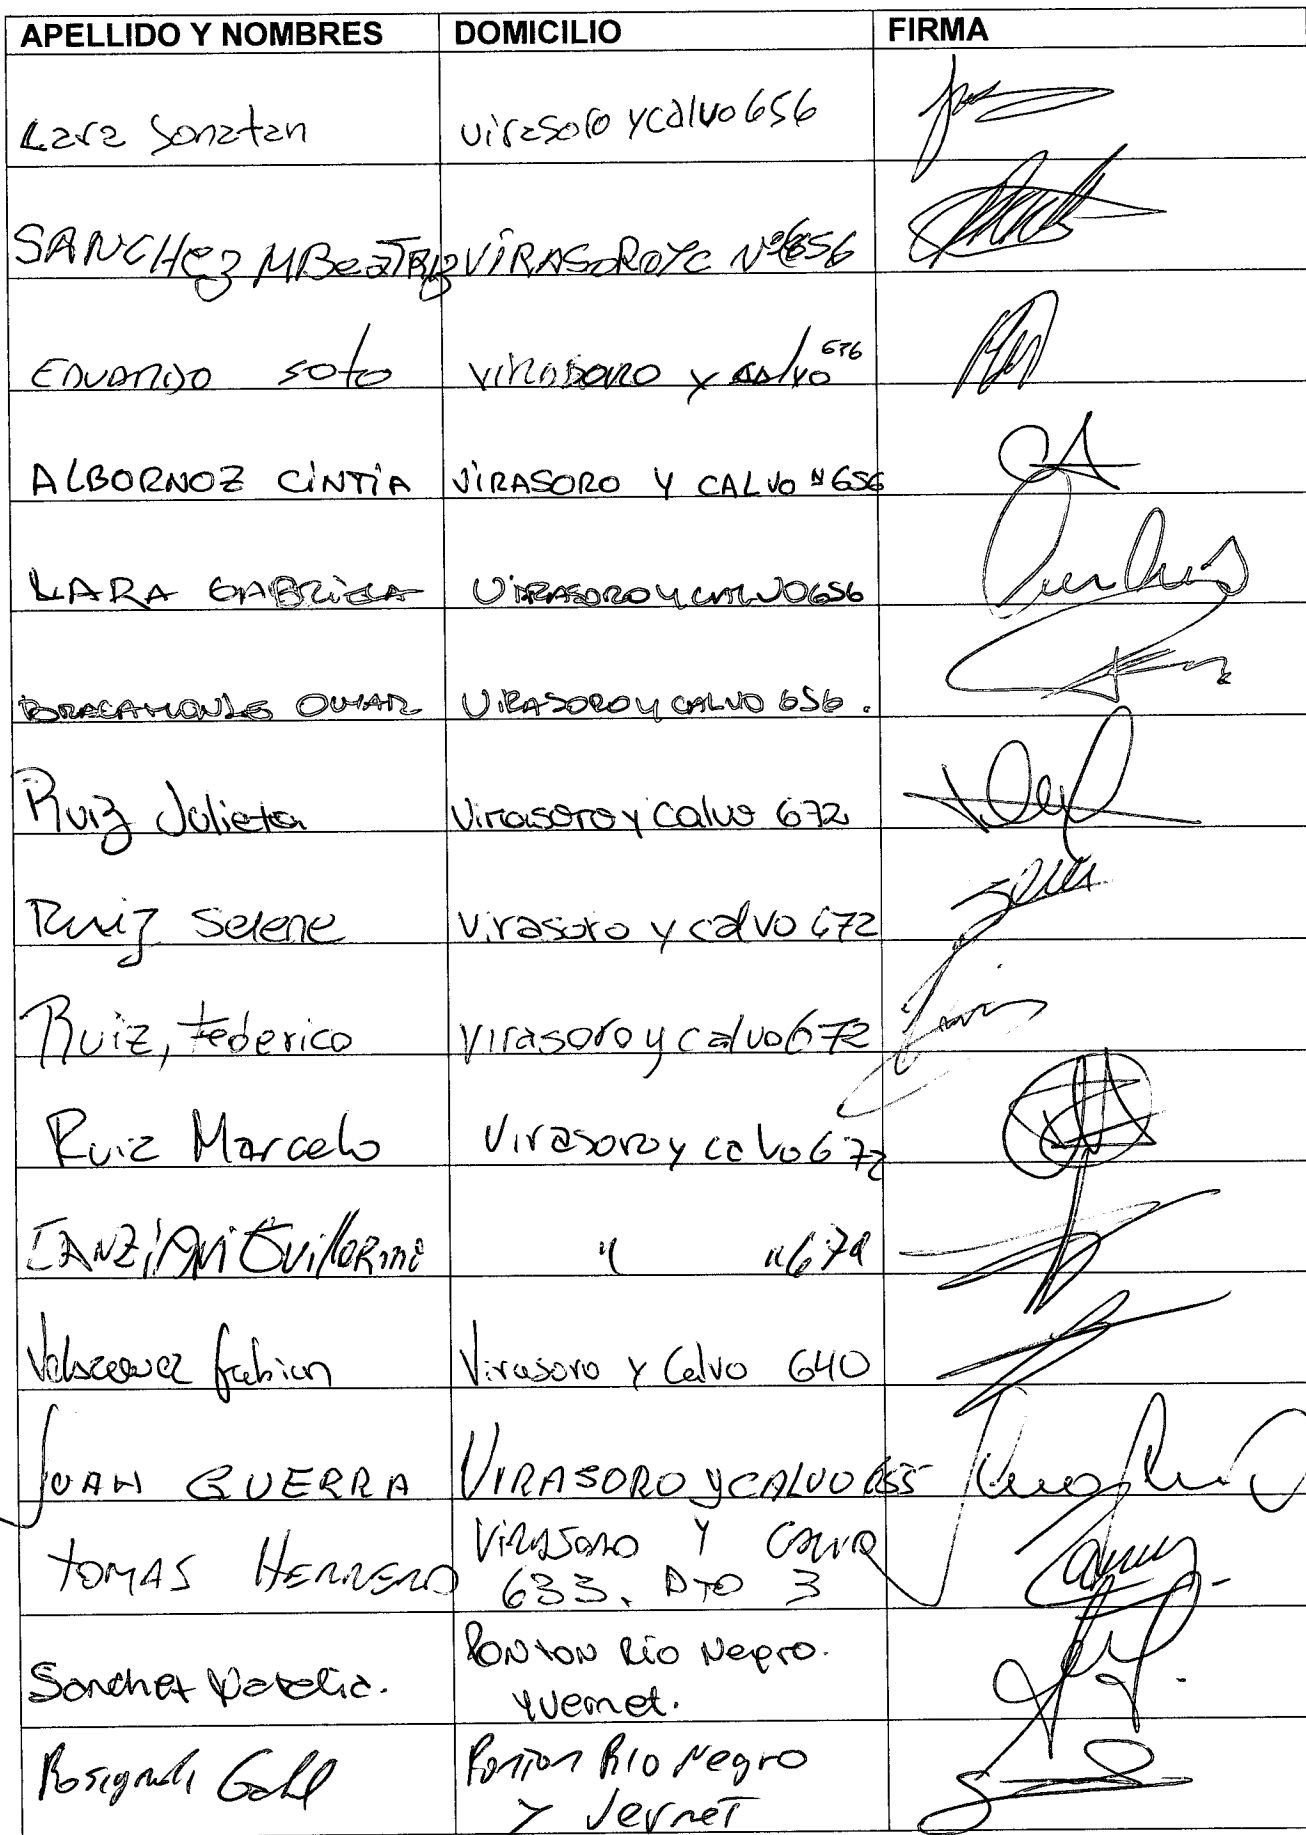 APELLIDO Y NOMBRES DOMICILIO FIRMA
Lara Jonatan Virasoro y calvo 656
SANCHEZ MBeaTRiz VIRASOROYC Nº 656
EDUARDO soto VIRASORO y calvo 676
ALBORNOZ CINTIA VIRASORO Y CALVO Nº 656
LARA GABRIELA VIRASORO y CALVO 656
BRACAMONTE OMAR VIRASORO y CALVO 656.
Ruiz Julieta Virasoro y Calvo 672
Ruiz Selene Virasoro y calvo 672
Ruiz, Federico Virasoro y calvo 672
Ruiz Marcelo Virasoro y calvo 672
IANZIANI Guillermo " " 679
Velazquez fabian Virasoro y Calvo 640
JUAN GUERRA VIRASORO y CALVO 655
TOMAS HERRERO VIRASORO Y CALVO
633. DTO 3
Sanchez Natalia. PONTON Río Negro.
y Vernet.
Ponton Rio Negro
y Vernet